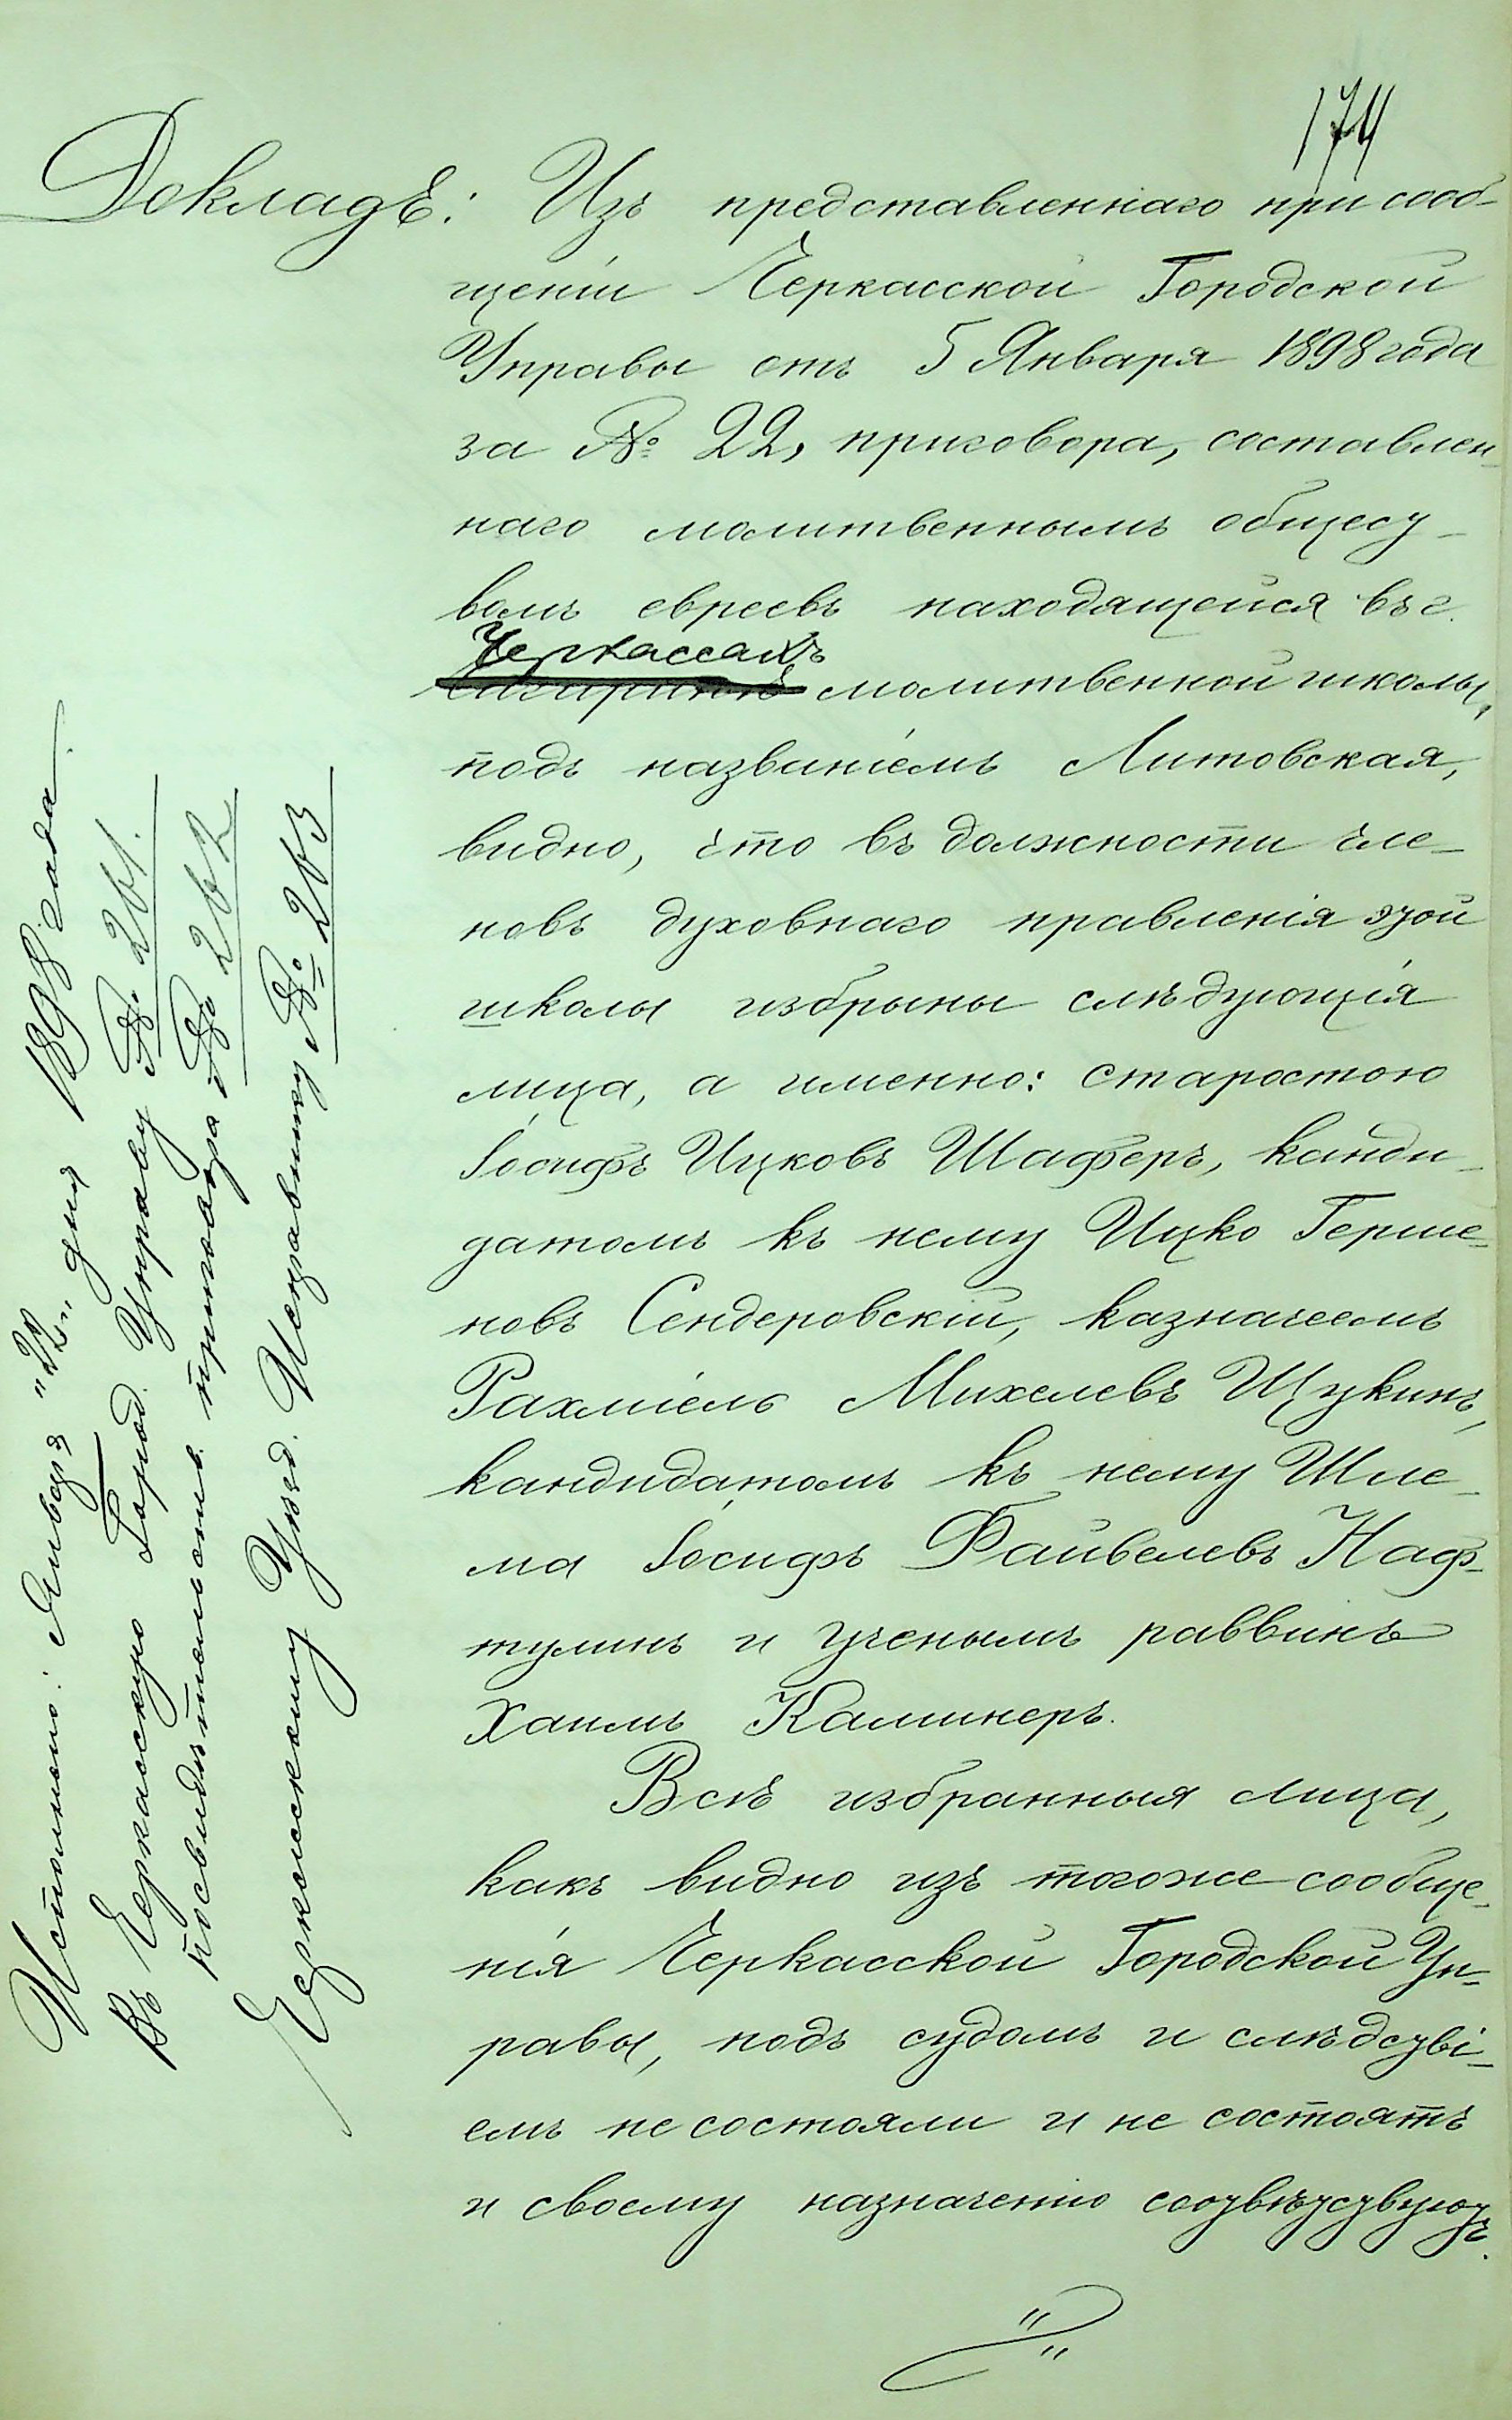 174
Докладъ: Изъ представленнаго при сооб-
щеніи Черкасской Городской
Управы отъ 5 Января 1898 года
за № 22, приговора, составлен-
наго молитвеннымъ общест-
вомъ евреевъ находящейся въ г.
Черкассахъ
молитвенной школы,
подъ названіемъ Литовская,
видно, что въ должности чле-
новъ духовнаго правленія этой
школы избраны слѣдующія
лица, а именно: старостою
Іосифъ Ицковъ Шаферъ, канди-
датомъ къ нему Ицко Герше-
новъ Сендеровскій, казначеемъ
Рахміель Михелевъ Щукинъ,
кандидатомъ къ нему Шле-
ма Іосифъ Файвелевъ Наф-
тулинъ и ученымъ раввинъ
Хаимъ Каминеръ.
Всѣ избранныя лица,
какъ видно изъ тогоже сообще-
нія Черкасской Городской Уп-
равы, подъ судомъ и слѣдстві-
емъ не состояли и не состоятъ
и своему назначенію соотвѣтствуютъ.
Исполнено: Января "22" дня 1898 года.
Въ Черкасскую Город. Управу № 261.
посвидѣтельств. приговора № 262
Черкасскому Уѣзд. Исправнику № 263